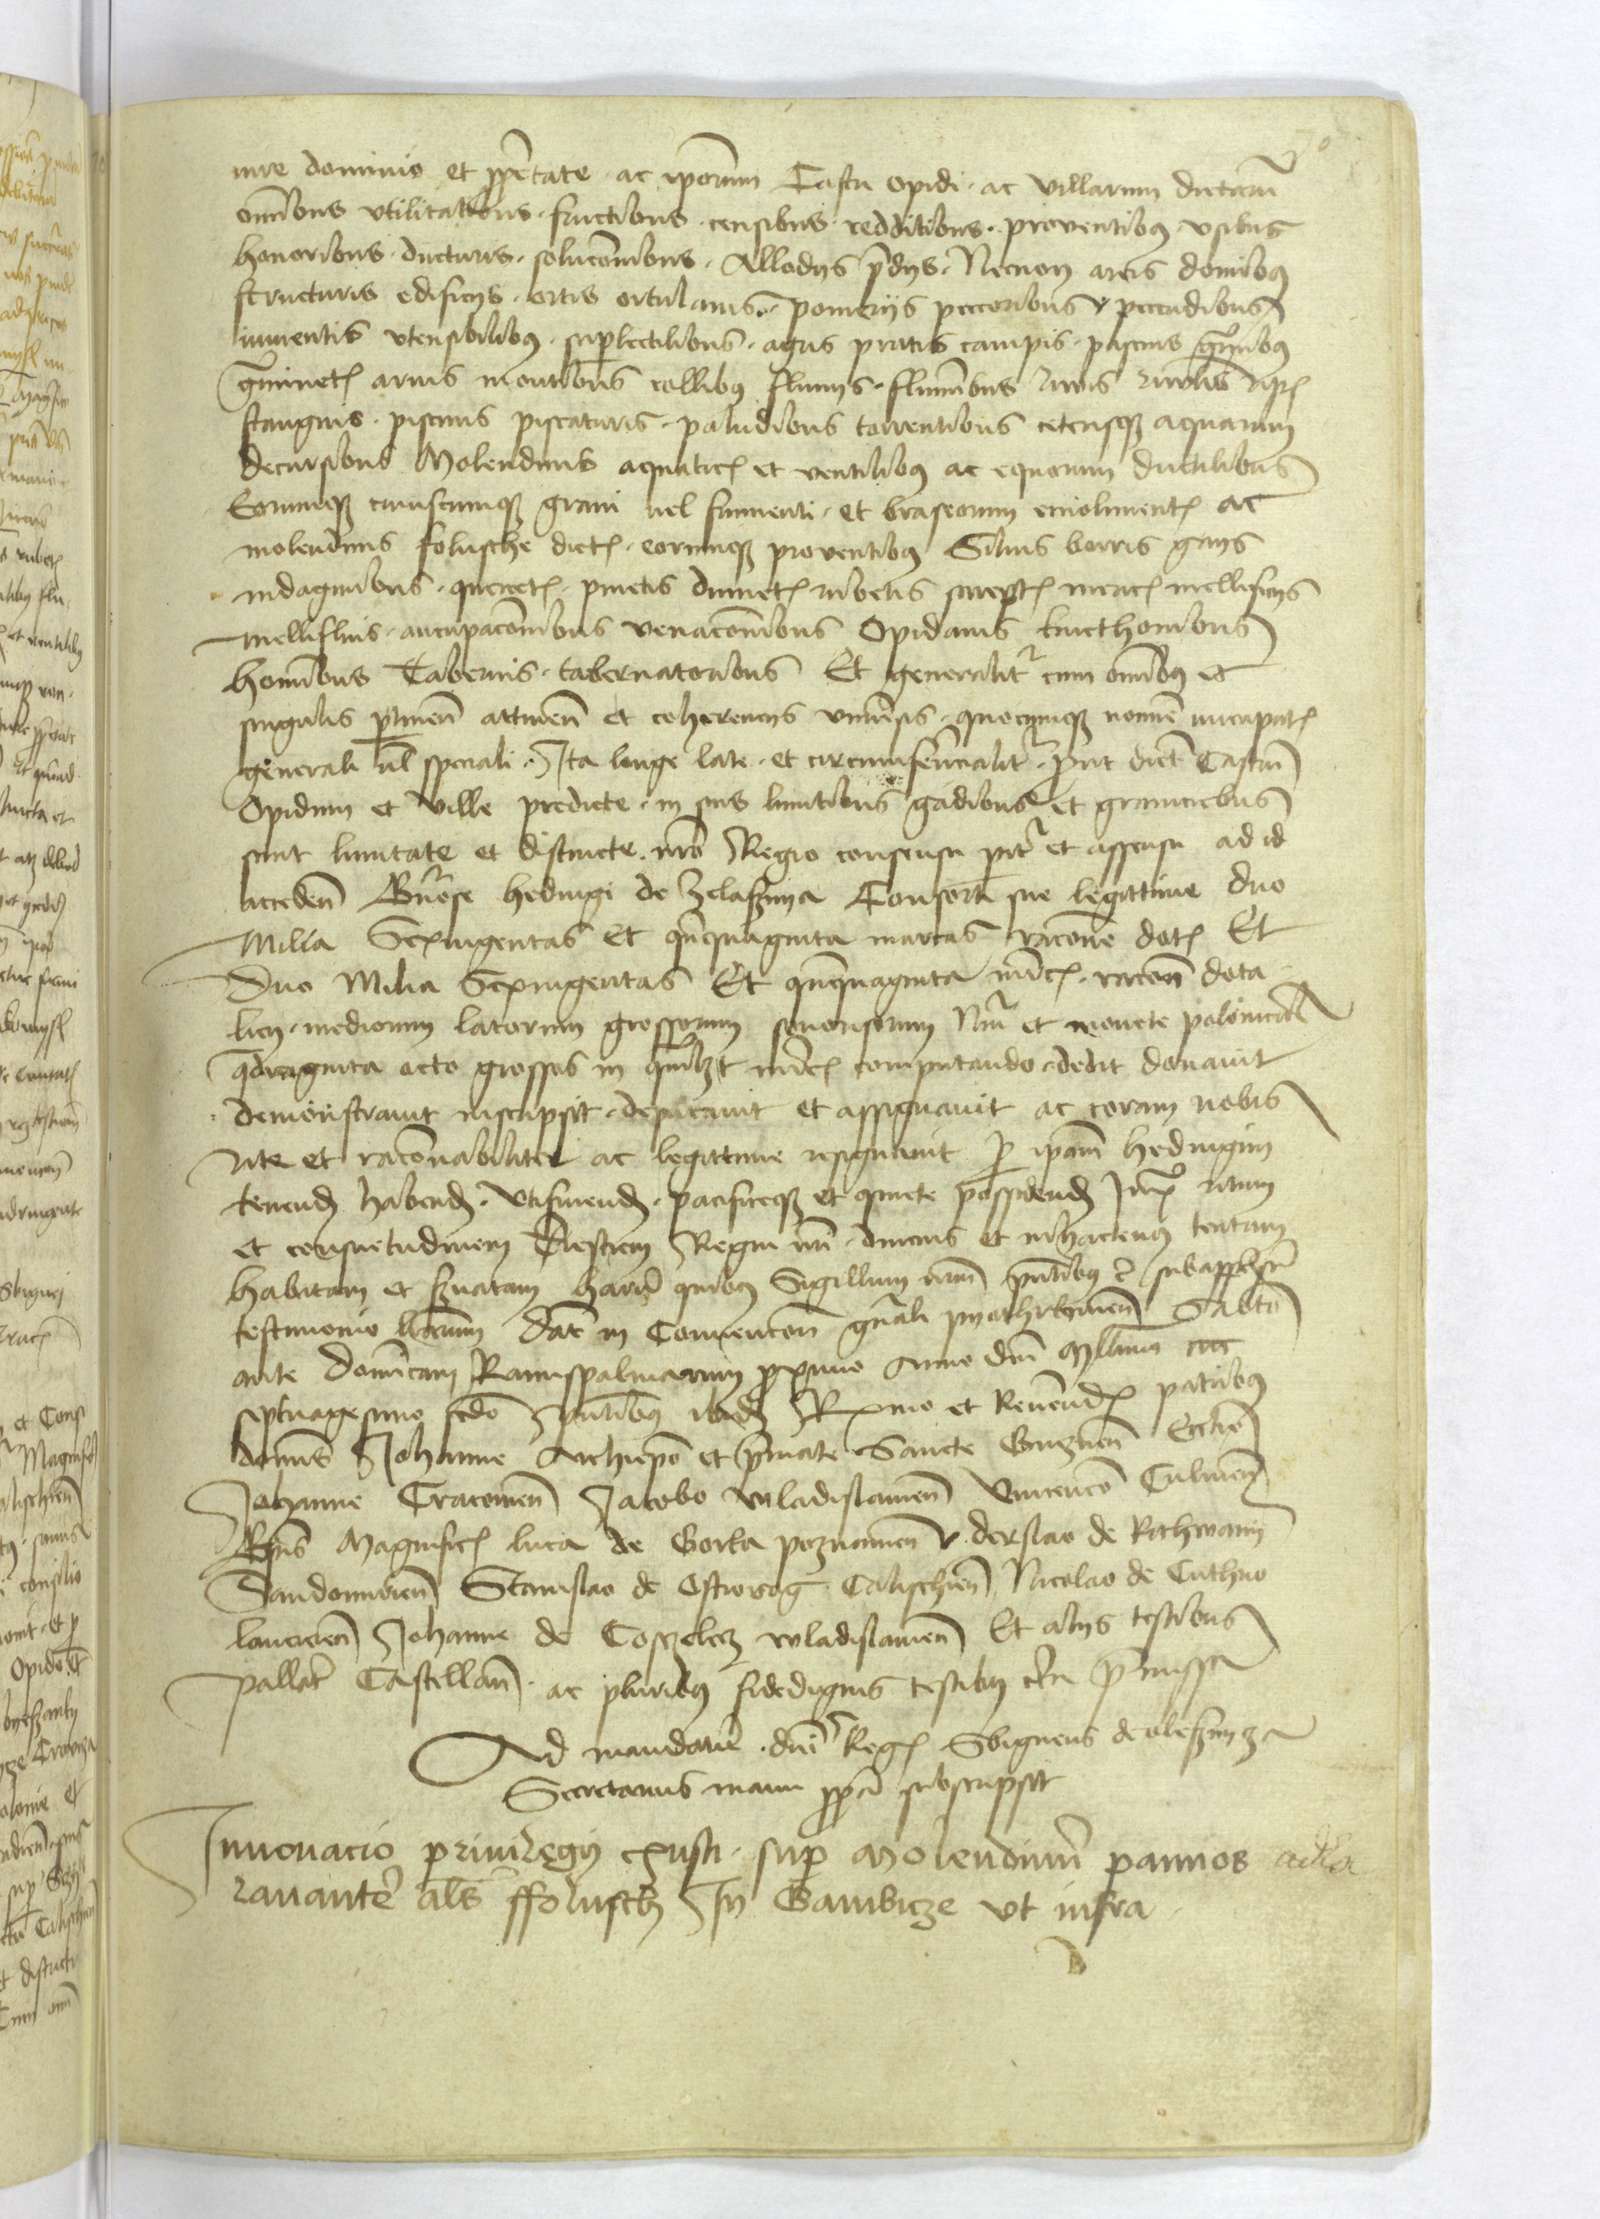 iure dominio et pprietate ac ipsorum Castri opidi ac villarum dictarum
omnibus vtilitatibus fructibus censibus redditibus proventibus vsibus
honoribus ducturis solucionibus Allodys pdys Necnon areis domibus
structuris edificys ortis ortulanis pomerys peccoribus pecudibus
iumentis vtensibilibus suplectilibus agris pratis campis pascuis
arvis montibus collibus fluvys fluminibus rivis rivulis
stangnis piscinis piscaturis paludibus torrentibus ceterisque aquarum
decursibus Molendinis aquaticis et ventilibus ac equorum ductilibus
Eorumque cuiuscumque grani vel frumenti et braseorum emolimentis ac
molendinis folusche dictis eorumque proventibus Silvis borris gays
indaginibus quercetis pinetis dumetis rubetis mericis mellificys
mellifluis aucupacionibus venacionibus Opidanis kmethonibus
hominibus Tabernis tabernatoribus Et generaliter cum omnibus et
singulis ptinen attinen et coherencys vniversis quocumque nomine nuncupatis
generali vel speciali Ita longe late et circumferencialiter prout dictum Castrum
Opidum et Ville predicte in suis limitibus gadibus et graniciebus
sunt limitate et distincte nro Regio consensu pariter et assensu ad id
acceden Gnrose hedvigi de Zelaszna Consorti sue legittime duo
Milia Sexingentas Et quinquaginta marcas racione dotis Et
Duo Milia Sexingentas Et quinquaginta mrcis racione dota
licii mediorum latorum grossorum sonorosorum Nri et monete polonicalis
quadraginta octo grossos in qualibet mrcis computando dedit donavit
demonstravit inscripsit deputavit et assignavit ac coram nobis
rite et racionabiliter ac legittime resignavit p ipsam hedvigim
tenendum habendum vtifruendum pacificeque et quiete possidendum Iuxta ritum
et consuetudinem Terestrem Regni nri diucius et inhactenus tentam
habitam et servatam harum quibus Sigillum nrum pntibus subappensum
testimonio litterarum Dat in Convencione gnrali pyothrkovien Sabto
ante Dominicam Ramispalmarum proximo Anno dni Millmo cccc
septuagesimo scdo Pntibus ibidem Rmo et Reverendis patribus
dominis Johanne Archiepo et primate Sancte Gneznen Ecclie
Johanne Cracovien Jacobo wladislavien Vincencio Culmen
Epis Magnificis luca de Gorka poznanien derslao de Rithwani
Sandomirien Stanislao de Ostrorog Calischien Nicolao de Cuthno
lancicien Johanne de Cosczelecz wladislavien Et alys testibus
pallat Castellan ac pluribus fidedignis testibus circa premissa
Ad mandatum dni Regis Sbigneus de olesznicza
Secretarius manu ppria subscripsit
Innovacio privilegy exusti sup Molendinum pannos
lavantem als ffolusch In Gambicze vt infra